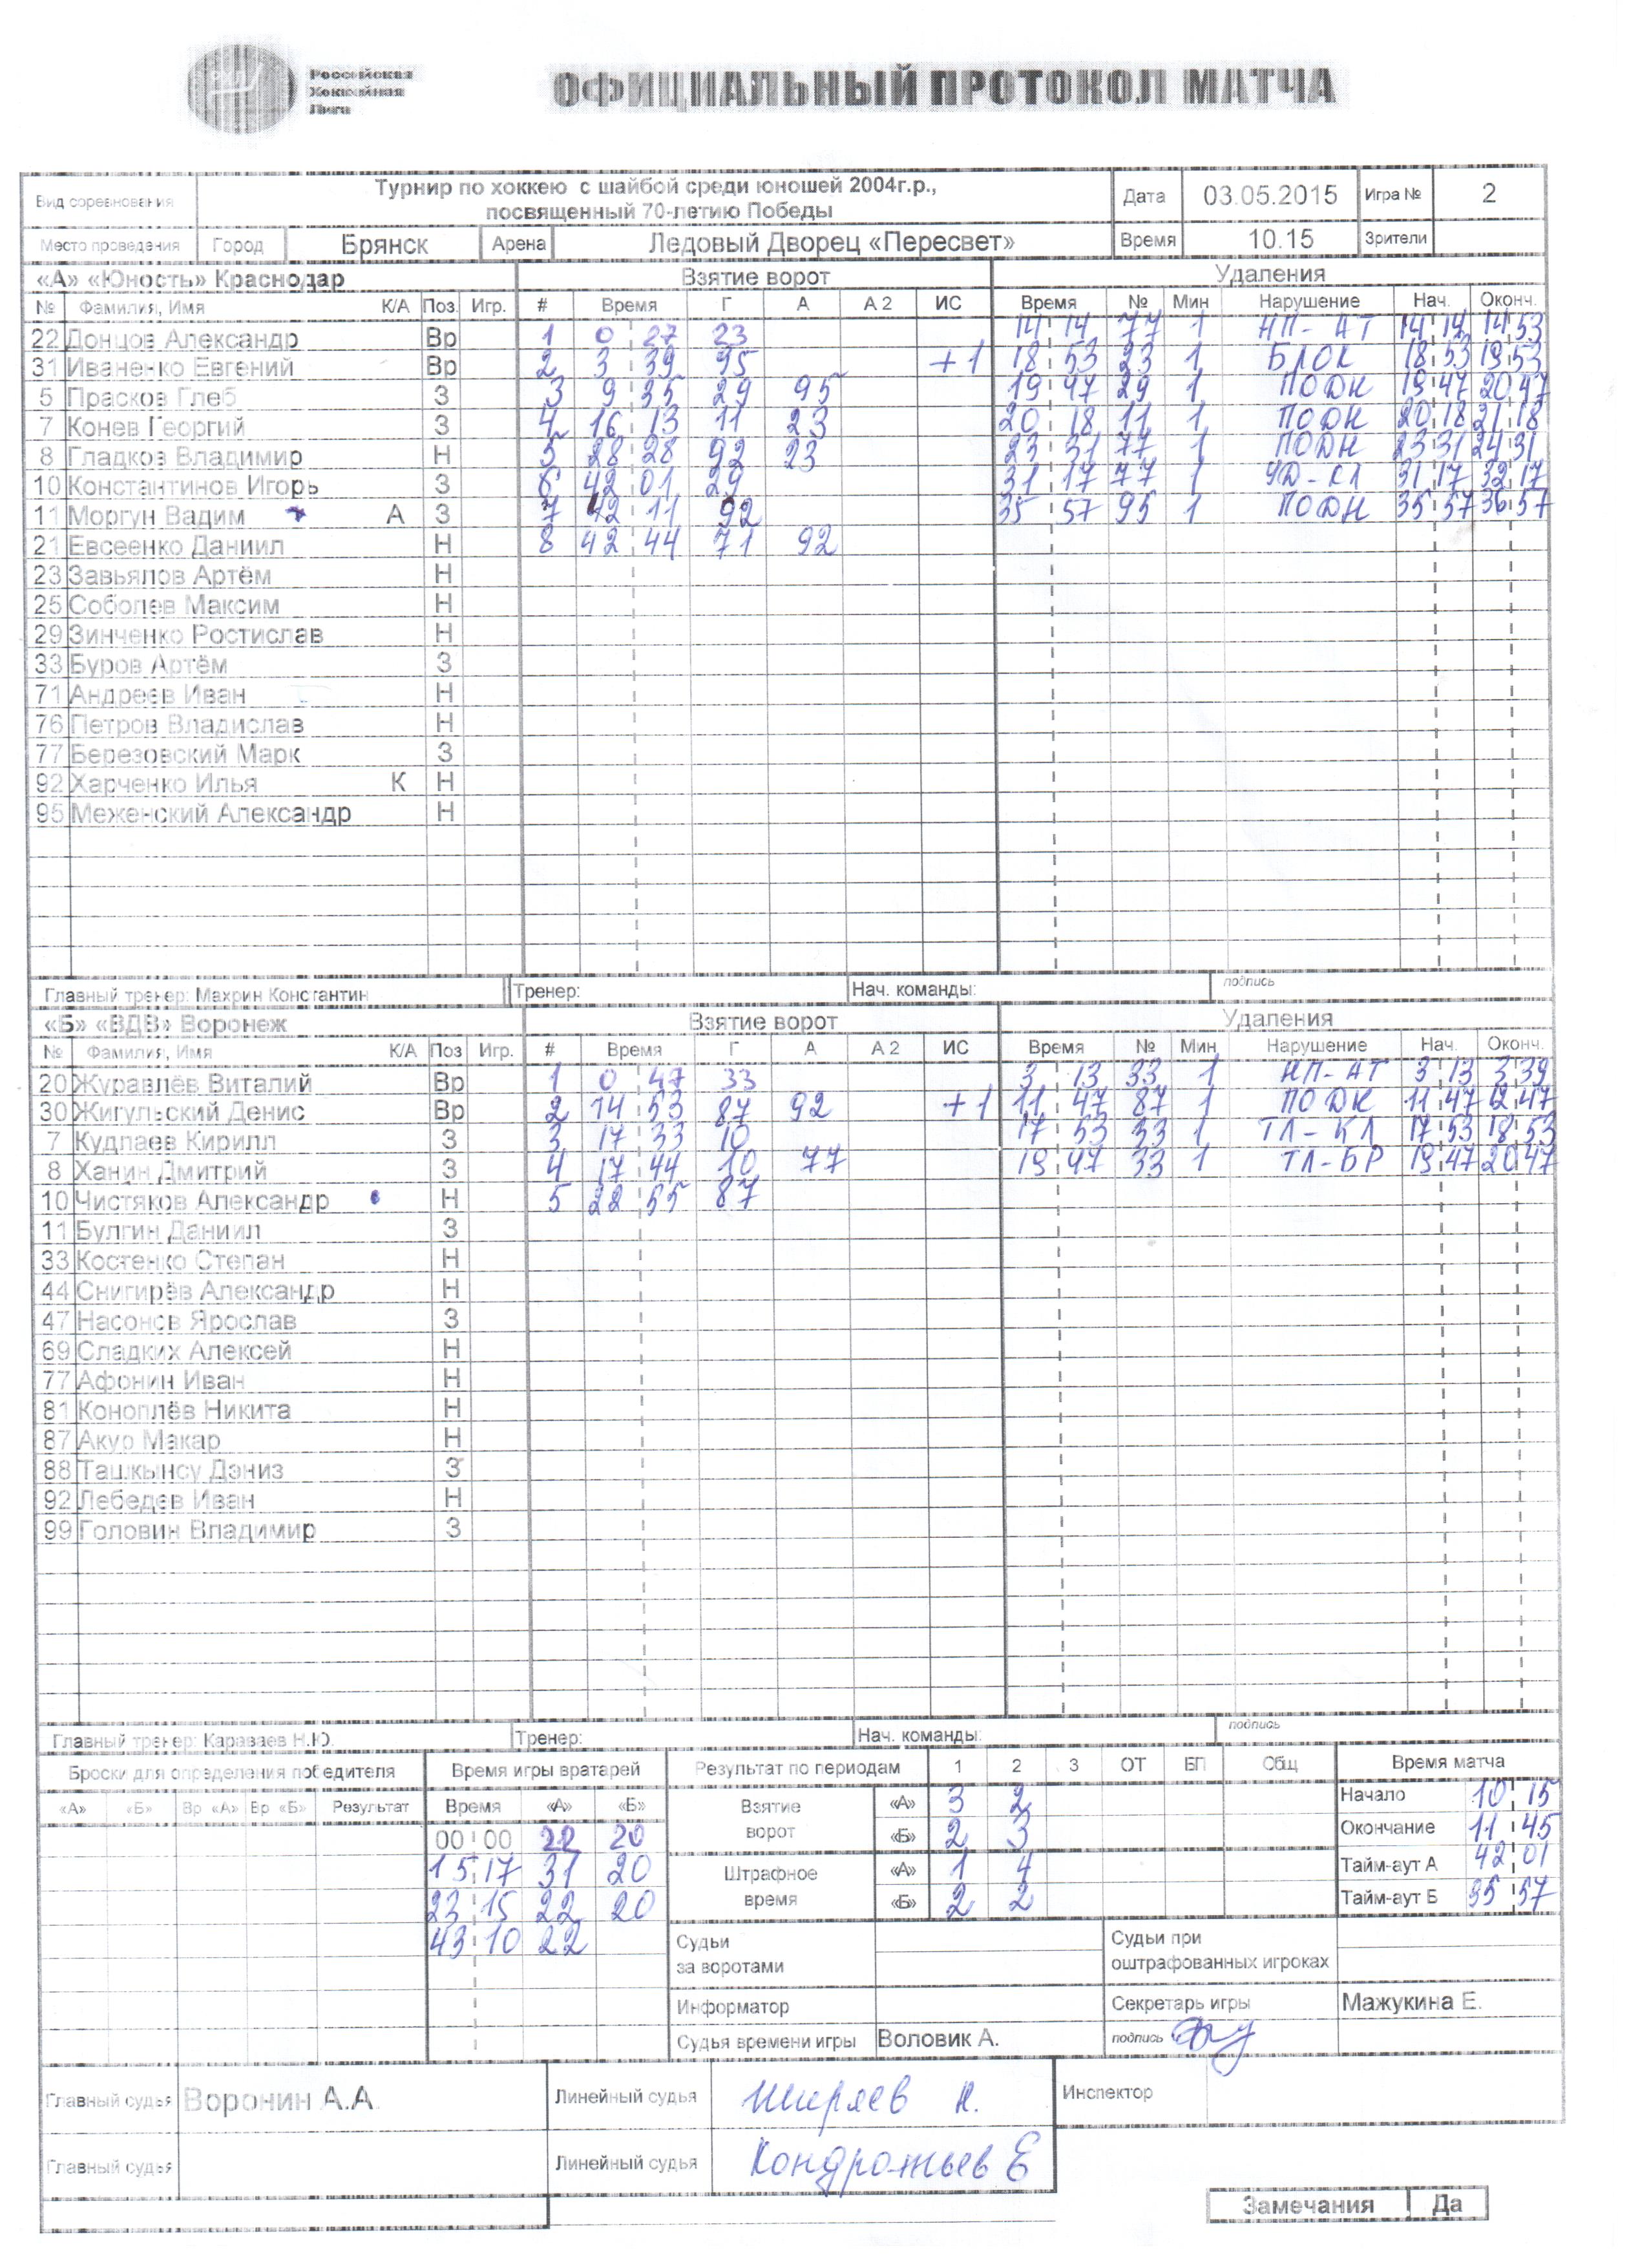 Российская
Хоккейная
Лига
ОФИЦИАЛЬНЫЙ ПРОТОКОЛ МАТЧА
Вид соревнования Турнир по хоккею с шайбой среди юношей 2004г.р., посвященный 70-летию Победы Дата 03.05.2015 Игра № 2
Место проведения Город Брянск Арена Ледовый Дворец «Пересвет» Время 10.15 Зрители
«А» «Юность» Краснодар Взятие ворот Удаления
№ Фамилия, Имя К/А Поз. Игр. # Время Г А А 2 ИС Время № Мин Нарушение Нач. Оконч.
22 Донцов Александр Вр 1 0 27 23 14 14 77 1 НП-АТ 14 14 14 53
31 Иваненко Евгений Вр 2 3 39 95 +1 18 53 23 1 БЛОК 18 53 19 53
5 Прасков Глеб З 3 9 35 29 95 19 47 29 1 ПОДН 19 47 20 47
7 Конев Георгий З 4 16 13 11 23 20 18 11 1 ПОДН 20 18 21 18
8 Гладков Владимир Н 5 28 28 92 23 23 31 77 1 ПОДН 23 31 24 31
10 Константинов Игорь З 6 42 01 29 31 17 77 1 УД-КЛ 31 17 32 17
11 Моргун Вадим А З 7 42 11 92 35 57 95 1 ПОДН 35 57 36 57
21 Евсеенко Даниил Н 8 42 44 71 92
23 Завьялов Артём Н
25 Соболев Максим Н
29 Зинченко Ростислав Н
33 Буров Артём З
71 Андреев Иван Н
76 Петров Владислав Н
77 Березовский Марк З
92 Харченко Илья К Н
95 Меженский Александр Н
Главный тренер: Махрин Константин Тренер: Нач. команды: подпись
«Б» «ВДВ» Воронеж Взятие ворот Удаления
№ Фамилия, Имя К/А Поз Игр. # Время Г А А 2 ИС Время № Мин Нарушение Нач. Оконч.
20 Журавлёв Виталий Вр 1 0 47 33 3 13 33 1 НП-АТ 3 13 3 39
30 Жигульский Денис Вр 2 14 53 87 92 +1 11 47 87 1 ПОДН 11 47 12 47
7 Кудлаев Кирилл З 3 17 33 10 17 53 33 1 ТЛ-КЛ 17 53 18 53
8 Ханин Дмитрий З 4 17 44 10 77 19 47 33 1 ТЛ-БР 19 47 20 47
10 Чистяков Александр Н 5 22 55 87
11 Булгин Даниил З
33 Костенко Степан Н
44 Снигирёв Александр Н
47 Насонов Ярослав З
69 Сладких Алексей Н
77 Афонин Иван Н
81 Коноплёв Никита Н
87 Акур Макар Н
88 Ташкынсу Дэниз З
92 Лебедев Иван Н
99 Головин Владимир З
Главный тренер: Караваев Н.Ю. Тренер: Нач. команды: подпись
Броски для определения победителя Время игры вратарей Результат по периодам 1 2 3 ОТ БП Общ Время матча
«А» «Б» Вр «А» Вр «Б» Результат Время «А» «Б» Взятие ворот «А» 3 2 Начало 10 15
00 00 22 20 «Б» 2 3 Окончание 11 45
15 17 31 20 Штрафное время «А» 1 4 Тайм-аут А 42 01
23 15 22 20 «Б» 2 2 Тайм-аут Б 35 57
43 10 22 Судьи за воротами Судьи при оштрафованных игроках
Информатор Секретарь игры Мажукина Е.
Судья времени игры Воловик А. подпись
Главный судья Воронин А.А. Линейный судья Ширяев А. Инспектор
Главный судья Линейный судья Кондратьев Е
Замечания Да